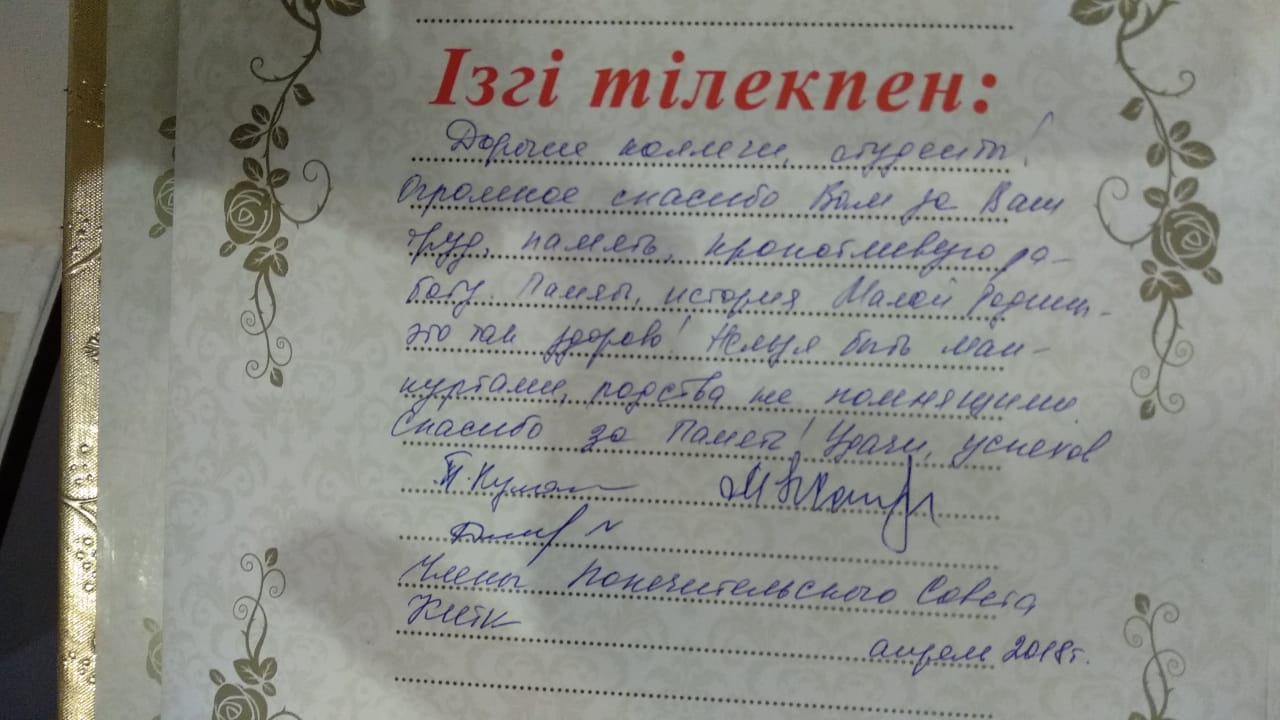 Ізгі тілекпен:
Дорогие коллеги, студенты!
Огромное спасибо Вам за Ваш
труд, память, кропотливую ра-
боту. Память, история Малой Родины -
это так здорово! Нельзя быть ман-
куртами, родства не помнящими
Спасибо за Память! Удачи, успехов
Члены Попечительского Совета
апрель 2018г.